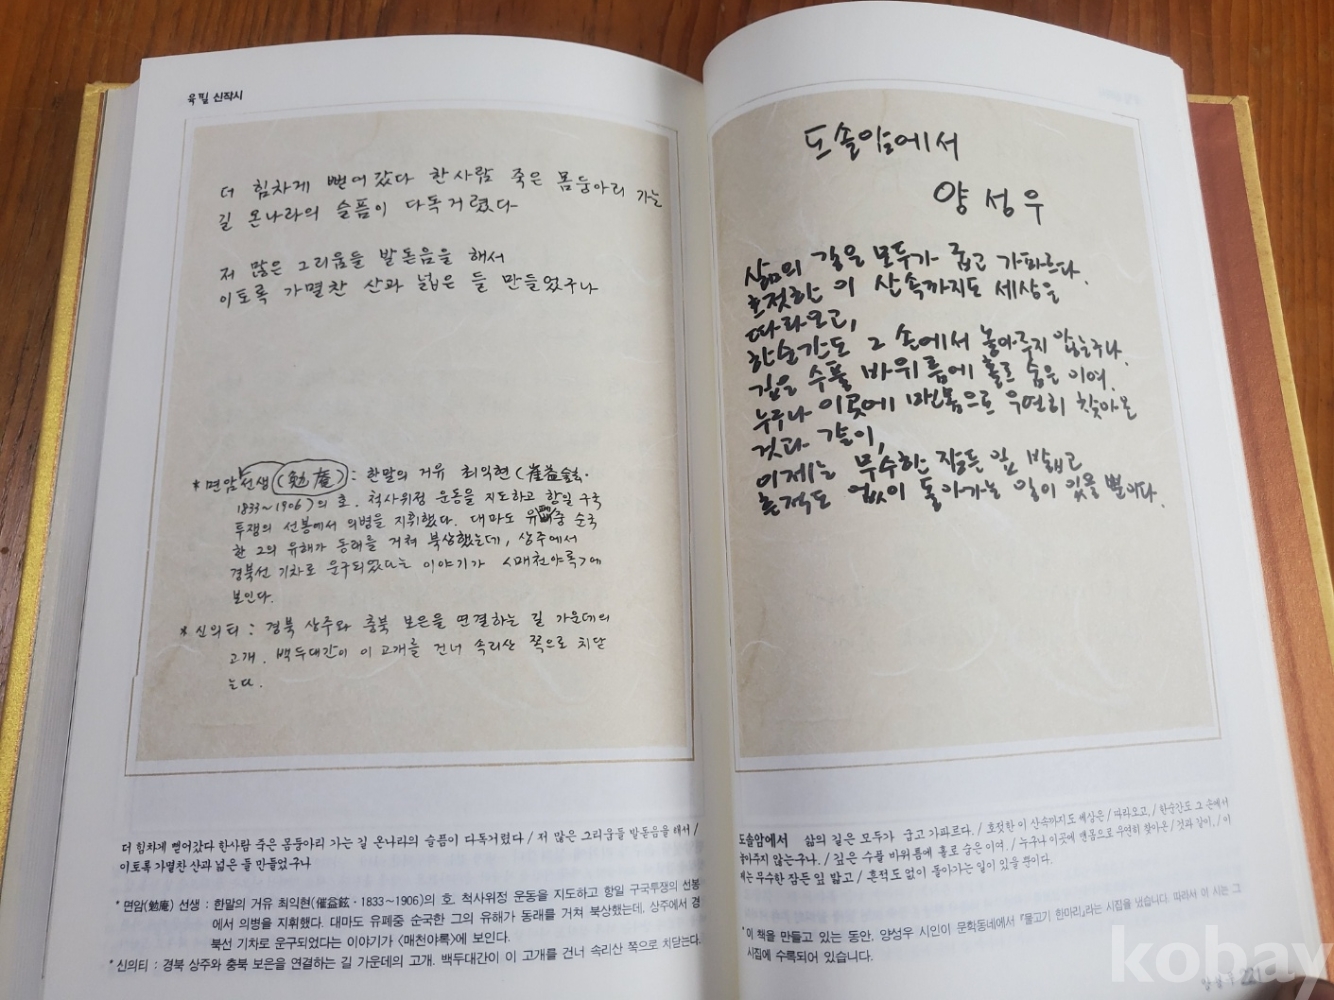 육필 신작시
더 힘차게 뻗어갔다 한사람 죽은 몸둥아리 가는
길 온나라의 슬픔이 다독거렸다
저 많은 그리움들 발돋음을 해서
이토록 가멸찬 산과 넓은 들 만들었구나
* 면암선생(勉庵) : 한말의 거유 최익현(崔益鉉·
1833~1906)의 호. 척사위정 운동을 지도하고 항일 구국
투쟁의 선봉에서 의병을 지휘했다. 대마도 유폐중 순국
한 그의 유해가 동래를 거쳐 북상했는데, 상주에서
경북선 기차로 운구되었다는 이야기가 <매천야록>에
보인다.
* 신의티 : 경북 상주와 충북 보은을 연결하는 길 가운데의
고개. 백두대간이 이 고개를 건너 속리산 쪽으로 치닫
는다.
더 힘차게 뻗어갔다 한사람 죽은 몸둥아리 가는 길 온나라의 슬픔이 다독거렸다 / 저 많은 그리움들 발돋음을 해서 /
이토록 가멸찬 산과 넓은 들 만들었구나
* 면암(勉庵) 선생 : 한말의 거유 최익현(催益鉉·1833~1906)의 호. 척사위정 운동을 지도하고 항일 구국투쟁의 선봉
에서 의병을 지휘했다. 대마도 유폐중 순국한 그의 유해가 동래를 거쳐 북상했는데, 상주에서 경
북선 기차로 운구되었다는 이야기가 <매천야록>에 보인다.
* 신의티 : 경북 상주와 충북 보은을 연결하는 길 가운데의 고개. 백두대간이 이 고개를 건너 속리산 쪽으로 치닫는다.
도솔암에서
양성우
삶의 길은 모두가 굽고 가파르다.
호젓한 이 산속까지도 세상은
따라오고,
한순간도 그 손에서 놓아주지 않는구나.
깊은 수풀 바위틈에 홀로 숨은 이여.
누구나 이곳에 맨몸으로 우연히 찾아온
것과 같이,
이제는 무수한 잠든 잎 밟고
흔적도 없이 돌아가는 일이 있을 뿐이다.
도솔암에서 삶의 길은 모두가 굽고 가파르다. / 호젓한 이 산속까지도 세상은 / 따라오고, / 한순간도 그 손에서
놓아주지 않는구나. / 깊은 수풀 바위틈에 홀로 숨은 이여. / 누구나 이곳에 맨몸으로 우연히 찾아온 / 것과 같이, / 이
제는 무수한 잠든 잎 밟고 / 흔적도 없이 돌아가는 일이 있을 뿐이다.
* 이 책을 만들고 있는 동안, 양성우 시인이 문학동네에서 『물고기 한마리』라는 시집을 냈습니다. 따라서 이 시는 그
시집에 수록되어 있습니다.
양성우 221
kobay